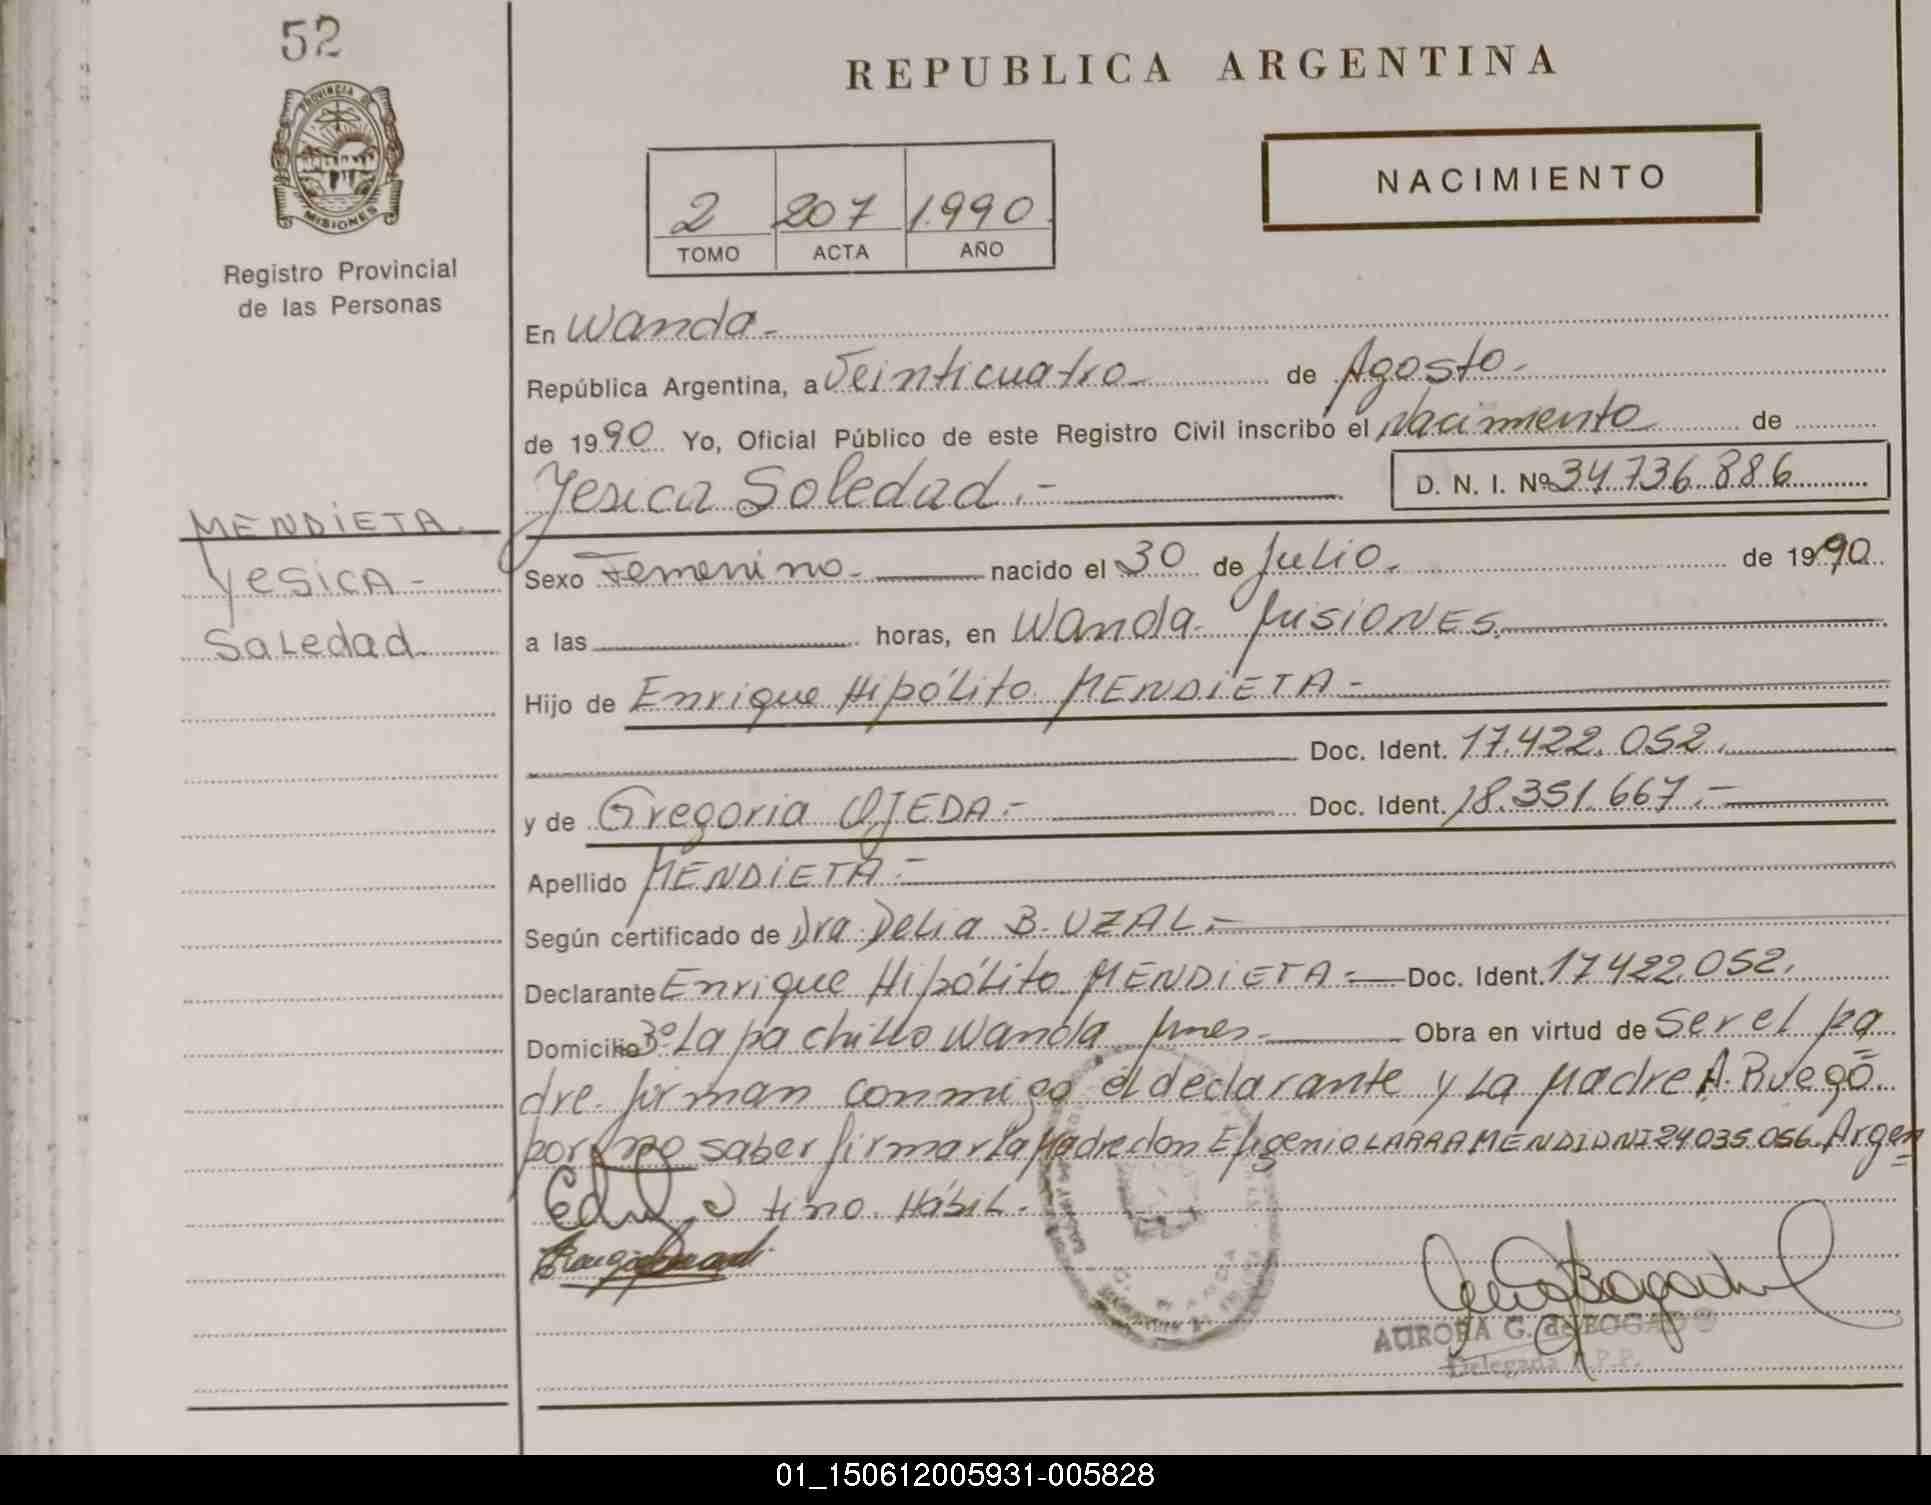 52
PROVINCIA DE
MISIONES
Registro Provincial
de las Personas
MENDIETA.
YESICA -
SaLedad.
REPUBLICA ARGENTINA
2 207 1.990.
TOMO ACTA AÑO
NACIMIENTO
En Wanda.-
República Argentina, a Veinticuatro de Agosto.-
de 1990 Yo, Oficial Público de este Registro Civil inscribo el Nacimiento de
Yesica Soledad.- D. N. I. Nº 34.736.886
Sexo Femenino.- nacido el 30 de Julio. de 1990
a las horas, en Wanda. MISIONES.
Hijo de Enrique Hipólito MENDIETA.-
Doc. Ident. 17.422.052.
y de Gregoria OJEDA.- Doc. Ident. 18.351.667.-
Apellido MENDIETA.-
Según certificado de Dra. Delia B. UZAL.-
Declarante Enrique Hipólito MENDIETA.- Doc. Ident. 17422.052.
Domicilio 3º Lapachillo Wanda Mnes.- Obra en virtud de ser el pa
dre. firman conmigo el declarante y La Madre A. Ruego
por no saber firmar La Madre don Efigenio LARA DNI 24.035.056. Argen=
tino. Hábil.-
AURORA G. de BOGADO
Delegada R.P.P.
01_150612005931-005828